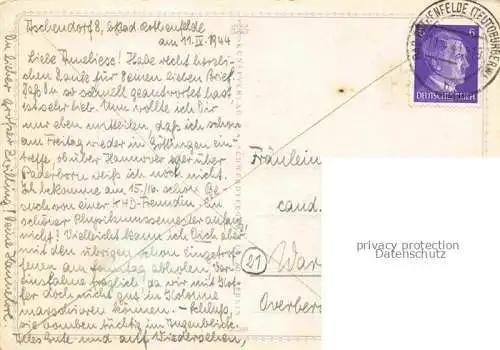 Aschendorf 8, b/Bad Rothenfelde
am 11.IV.1944
Liebe Anneliese! Habe recht herzli-
chen Dank für Deinen lieben Brief.
Daß Du so schnell geantwortet hast
ist sehr lieb. Nun wollte ich Dir
nur eben mitteilen, daß ich schon
am Freitag wieder in Göttingen ein-
treffe, ob über Hannover oder über
Paderborn weiß ich noch nicht.
Ich bekomme am 15./16. schon Be-
such von einer KHD-Freundin. Ein
schöner Physikumssemester anfang
nicht! Vielleicht kann ich Dich aber
mit den übrigen schon eingetrof-
fenen am Sonntag abholen. Vor-
einfahrt fraglich, da wir mit Kof-
fer doch nicht gut in Kolonne
marschieren können. – Schluß,
sie bomben tüchtig im Augenblick.
Alles Gute und auf Wiedersehen,
Du lieber großer Zwilling! Deine Hannelore.
ENFELDE (TEUTOBURGERW)
6
DEUTSCHES REICH
Fräulein
cand.
21
War
Overber
privacy protection
Datenschutz